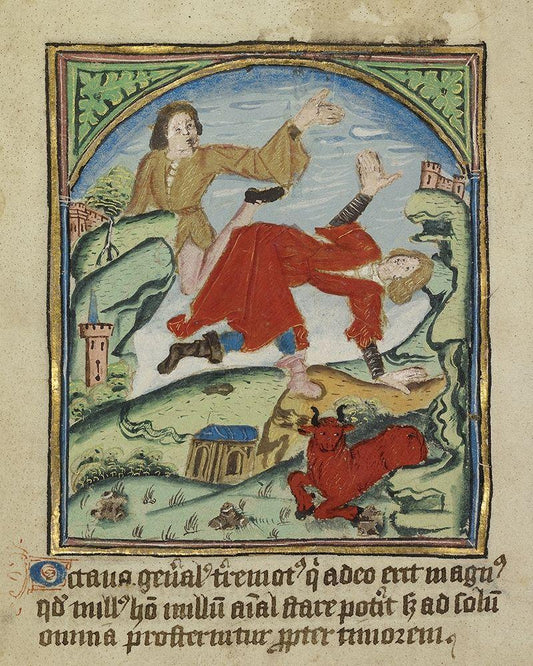 Octaua gen̄al᾽ t̄remotꝰ qͥ adeo erit magnꝰ
qd̓ nullꝰ hō nullū aīal stare pot̓it sꝫ ad solū
omnia prosternutur ꝓpter timorem.